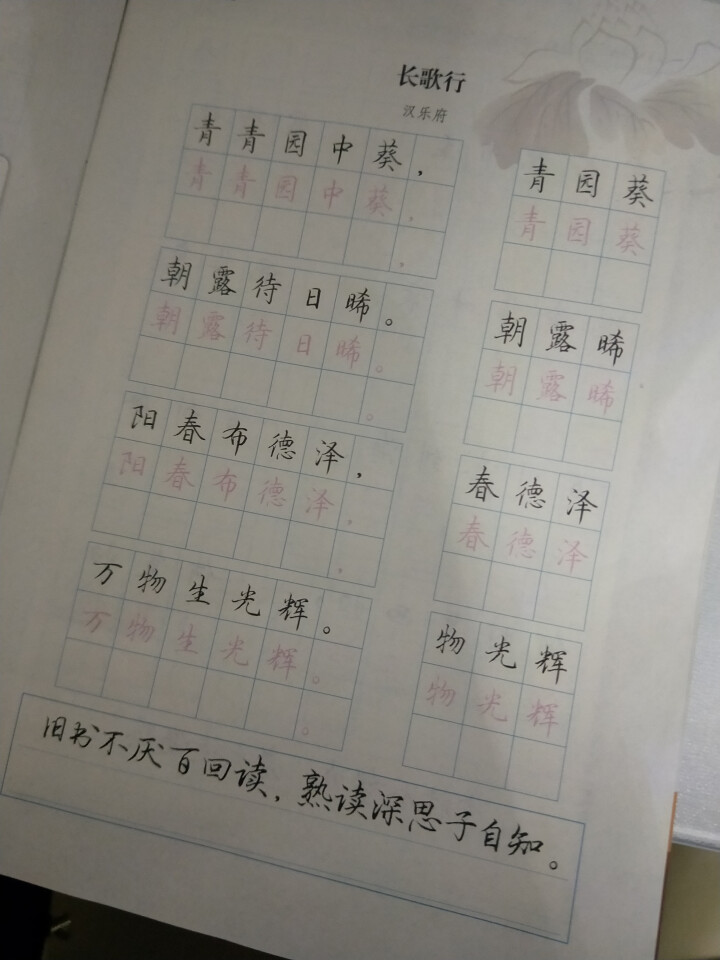 长歌行
汉乐府
青青园中葵，
青青园中葵，
，
朝露待日晞。
朝露待日晞。
。
阳春布德泽，
阳春布德泽，
，
万物生光辉。
万物生光辉。
。
青园葵
青园葵
朝露晞
朝露晞
春德泽
春德泽
物光辉
物光辉
旧书不厌百回读，熟读深思子自知。